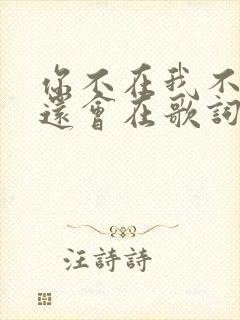 你不在我不
還會在歌詞
汪詩詩